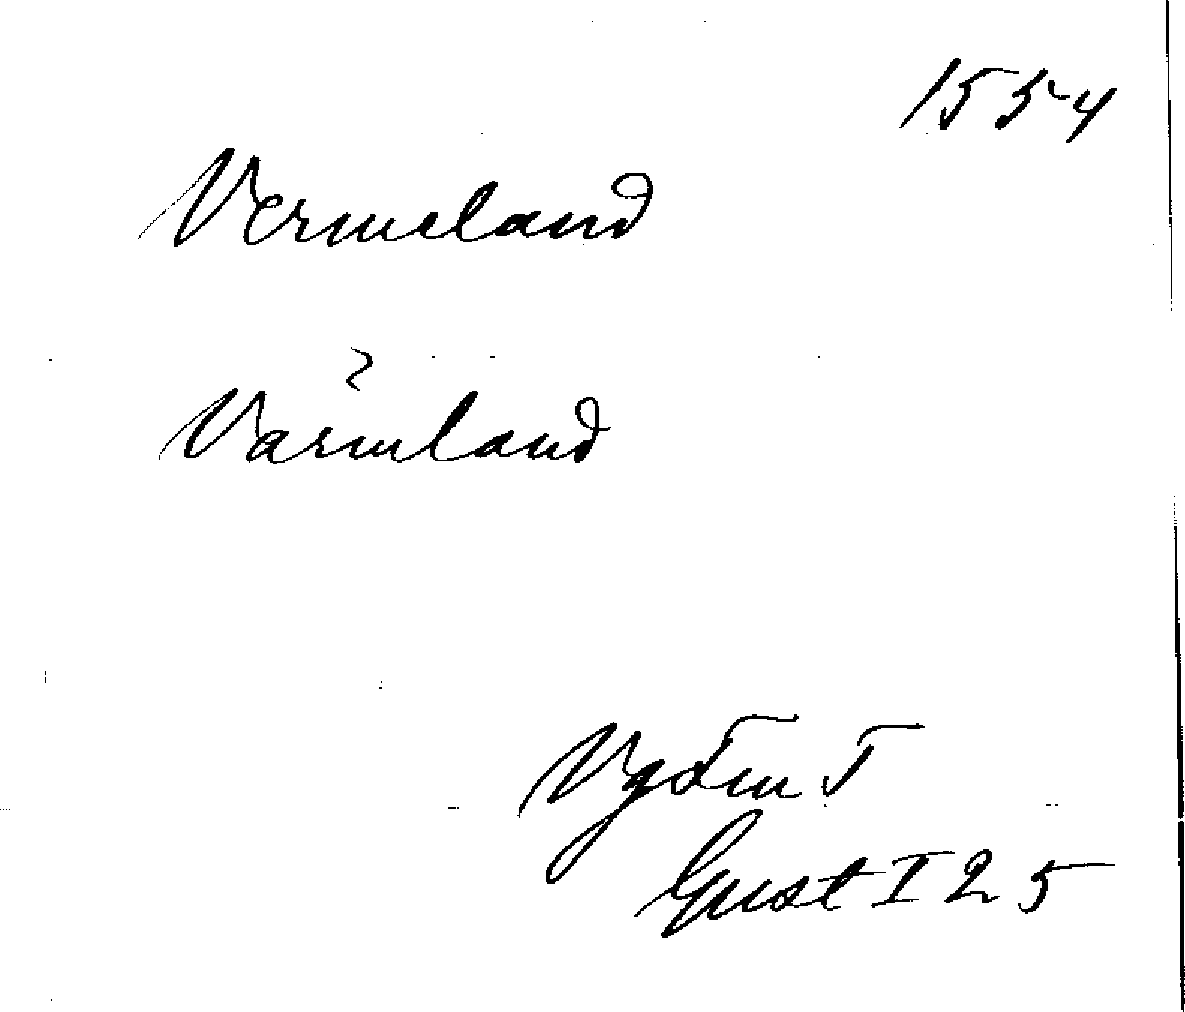 1554
Vermeland
Värmland
Gust I 25